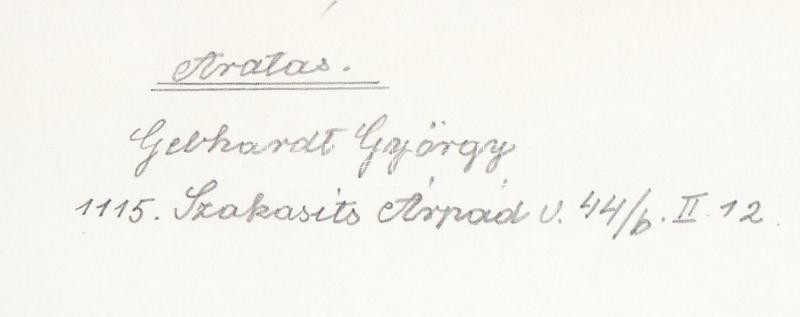 Aratás.
Gebhardt György
1115. Szakasits Árpád u. 44/b. II. 12